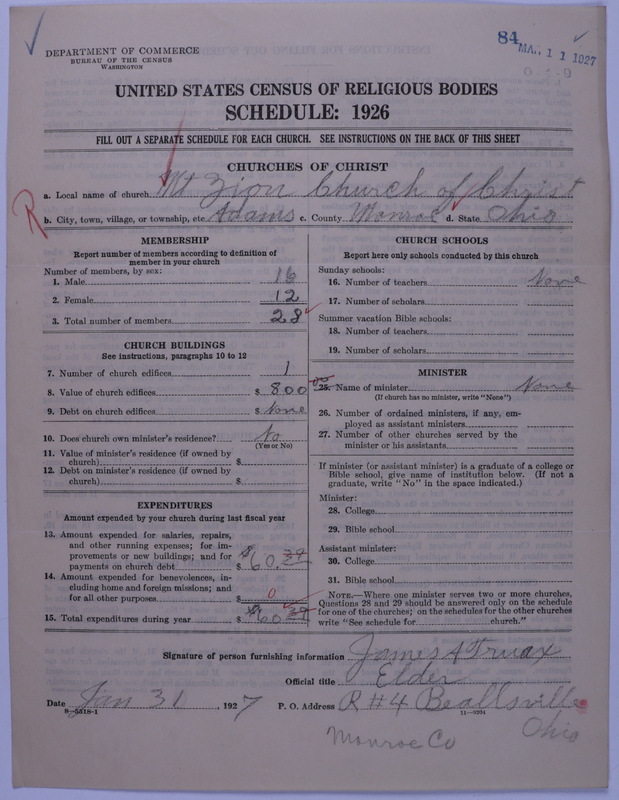 84
MAR 11 1927
DEPARTMENT OF COMMERCE
BUREAU OF THE CENSUS
WASHINGTON
UNITED STATES CENSUS OF RELIGIOUS BODIES
SCHEDULE: 1926
FILL OUT A SEPARATE SCHEDULE FOR EACH CHURCH. SEE INSTRUCTIONS ON THE BACK OF THIS SHEET
CHURCHES OF CHRIST
a. Local name of church Mt Zion Church of Christ
R
b. City, town, village, or township, etc Adams c. County Monroe d. State Ohio
MEMBERSHIP
Report number of members according to definition of
member in your church
Number of members, by sex:
1. Male 16
2. Female 12
3. Total number of members 28
CHURCH BUILDINGS
See instructions, paragraphs 10 to 12
7. Number of church edifices 1
8. Value of church edifices $ 800
9. Debt on church edifices $ None
10. Does church own minister's residence? No
(Yes or No)
11. Value of minister's residence (if owned by
church) $
12. Debt on minister's residence (if owned by
church) $
EXPENDITURES
Amount expended by your church during last fiscal year
13. Amount expended for salaries, repairs,
and other running expenses; for im-
provements or new buildings; and for
payments on church debt $ 60.39
14. Amount expended for benevolences, in-
cluding home and foreign missions; and
for all other purposes $ 0
15. Total expenditures during year $ 60 39
CHURCH SCHOOLS
Report here only schools conducted by this church
Sunday schools:
16. Number of teachers None
17. Number of scholars
Summer vacation Bible schools:
18. Number of teachers
19. Number of scholars
MINISTER
25. Name of minister None
(If church has no minister, write "None")
26. Number of ordained ministers, if any, em-
ployed as assistant ministers
27. Number of other churches served by the
minister or his assistants
If minister (or assistant minister) is a graduate of a college or
Bible school, give name of institution below. (If not a
graduate, write "No" in the space indicated.)
Minister:
28. College
29. Bible school
Assistant minister:
30. College
31. Bible school
NOTE.—Where one minister serves two or more churches,
Questions 28 and 29 should be answered only on the schedule
for one of the churches; on the schedules for the other churches
write "See schedule for church."
Signature of person furnishing information James A Truax
Official title Elder
Date Jan 31, 1927 P. O. Address R #4 Beallsville
8-5518-1
Ohio
Monroe Co